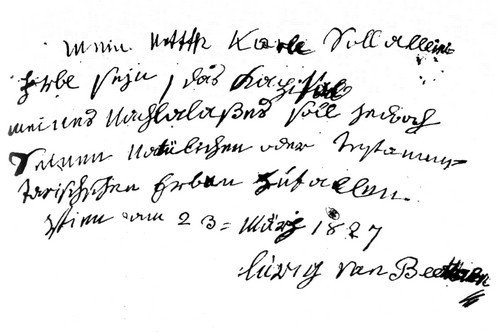 Mein Neffe Karle Soll alleini
Erbe sejn, das Kapital
meines Nachlalaßes soll jedoch
Seinen natülichen oder testamen-
tarischschen Erben zufallen.
Wien am 23= März 1827
luwig van Beethoven